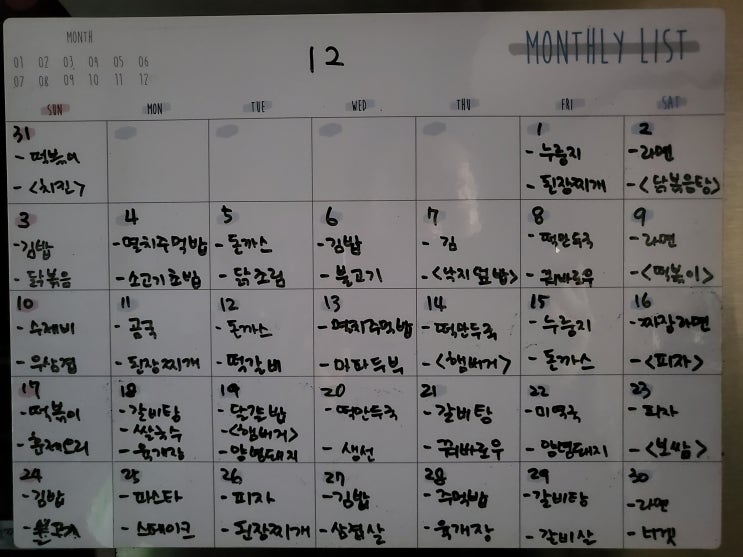 MONTH
01 02 03 04 05 06
07 08 09 10 11 12
12
MONTHLY LIST
SUN MON TUE WED THU FRI SAT
31
- 떡볶이
- <치킨>
1
- 누룽지
- 된장찌개
2
- 라면
- <닭볶음탕>
3
- 김밥
- 닭볶음
4
- 멸치주먹밥
- 소고기초밥
5
- 돈까스
- 닭조림
6
- 김밥
- 불고기
7
- 김
- <낙지덮밥>
8
- 떡만두국
- 꿔바로우
9
- 라면
- <떡볶이>
10
- 수제비
- 우삼겹
11
- 곰국
- 된장찌개
12
- 돈까스
- 떡갈비
13
- 멸치주먹밥
- 마파두부
14
- 떡만두국
- <햄버거>
15
- 누룽지
- 돈까스
16
- 짜장라면
- <피자>
17
- 떡볶이
- 훈제오리
18
- 갈비탕
- 쌀국수
- 육개장
19
- 달걀밥
- <햄버거>
- 양념돼지
20
- 떡만두국
- 생선
21
- 갈비탕
- 꿔바로우
22
- 미역국
- 양념돼지
23
- 피자
- <보쌈>
24
- 김밥
25
- 파스타
- 스테이크
26
- 피자
- 된장찌개
27
- 김밥
- 삼겹살
28
- 주먹밥
- 육개장
29
- 갈비탕
- 갈비살
30
- 라면
- 너겟